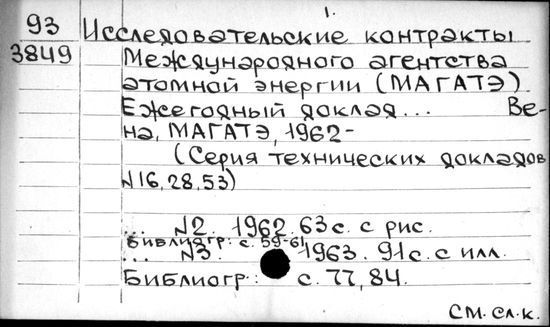 1.
93 Исследовательские контракты
3849 Международного агентства
атомной энергии (МАГАТЭ).
Ежегодный доклад... Ве-
на, МАГАТЭ, 1962-
(Серия технических докладов
N16,28,53)
... N2. 1962. 63с. с рис.
Библиогр: с. 59-61
... N3. 1963. 91с. с илл.
Библиогр: с. 77, 84.
см. сл. к.